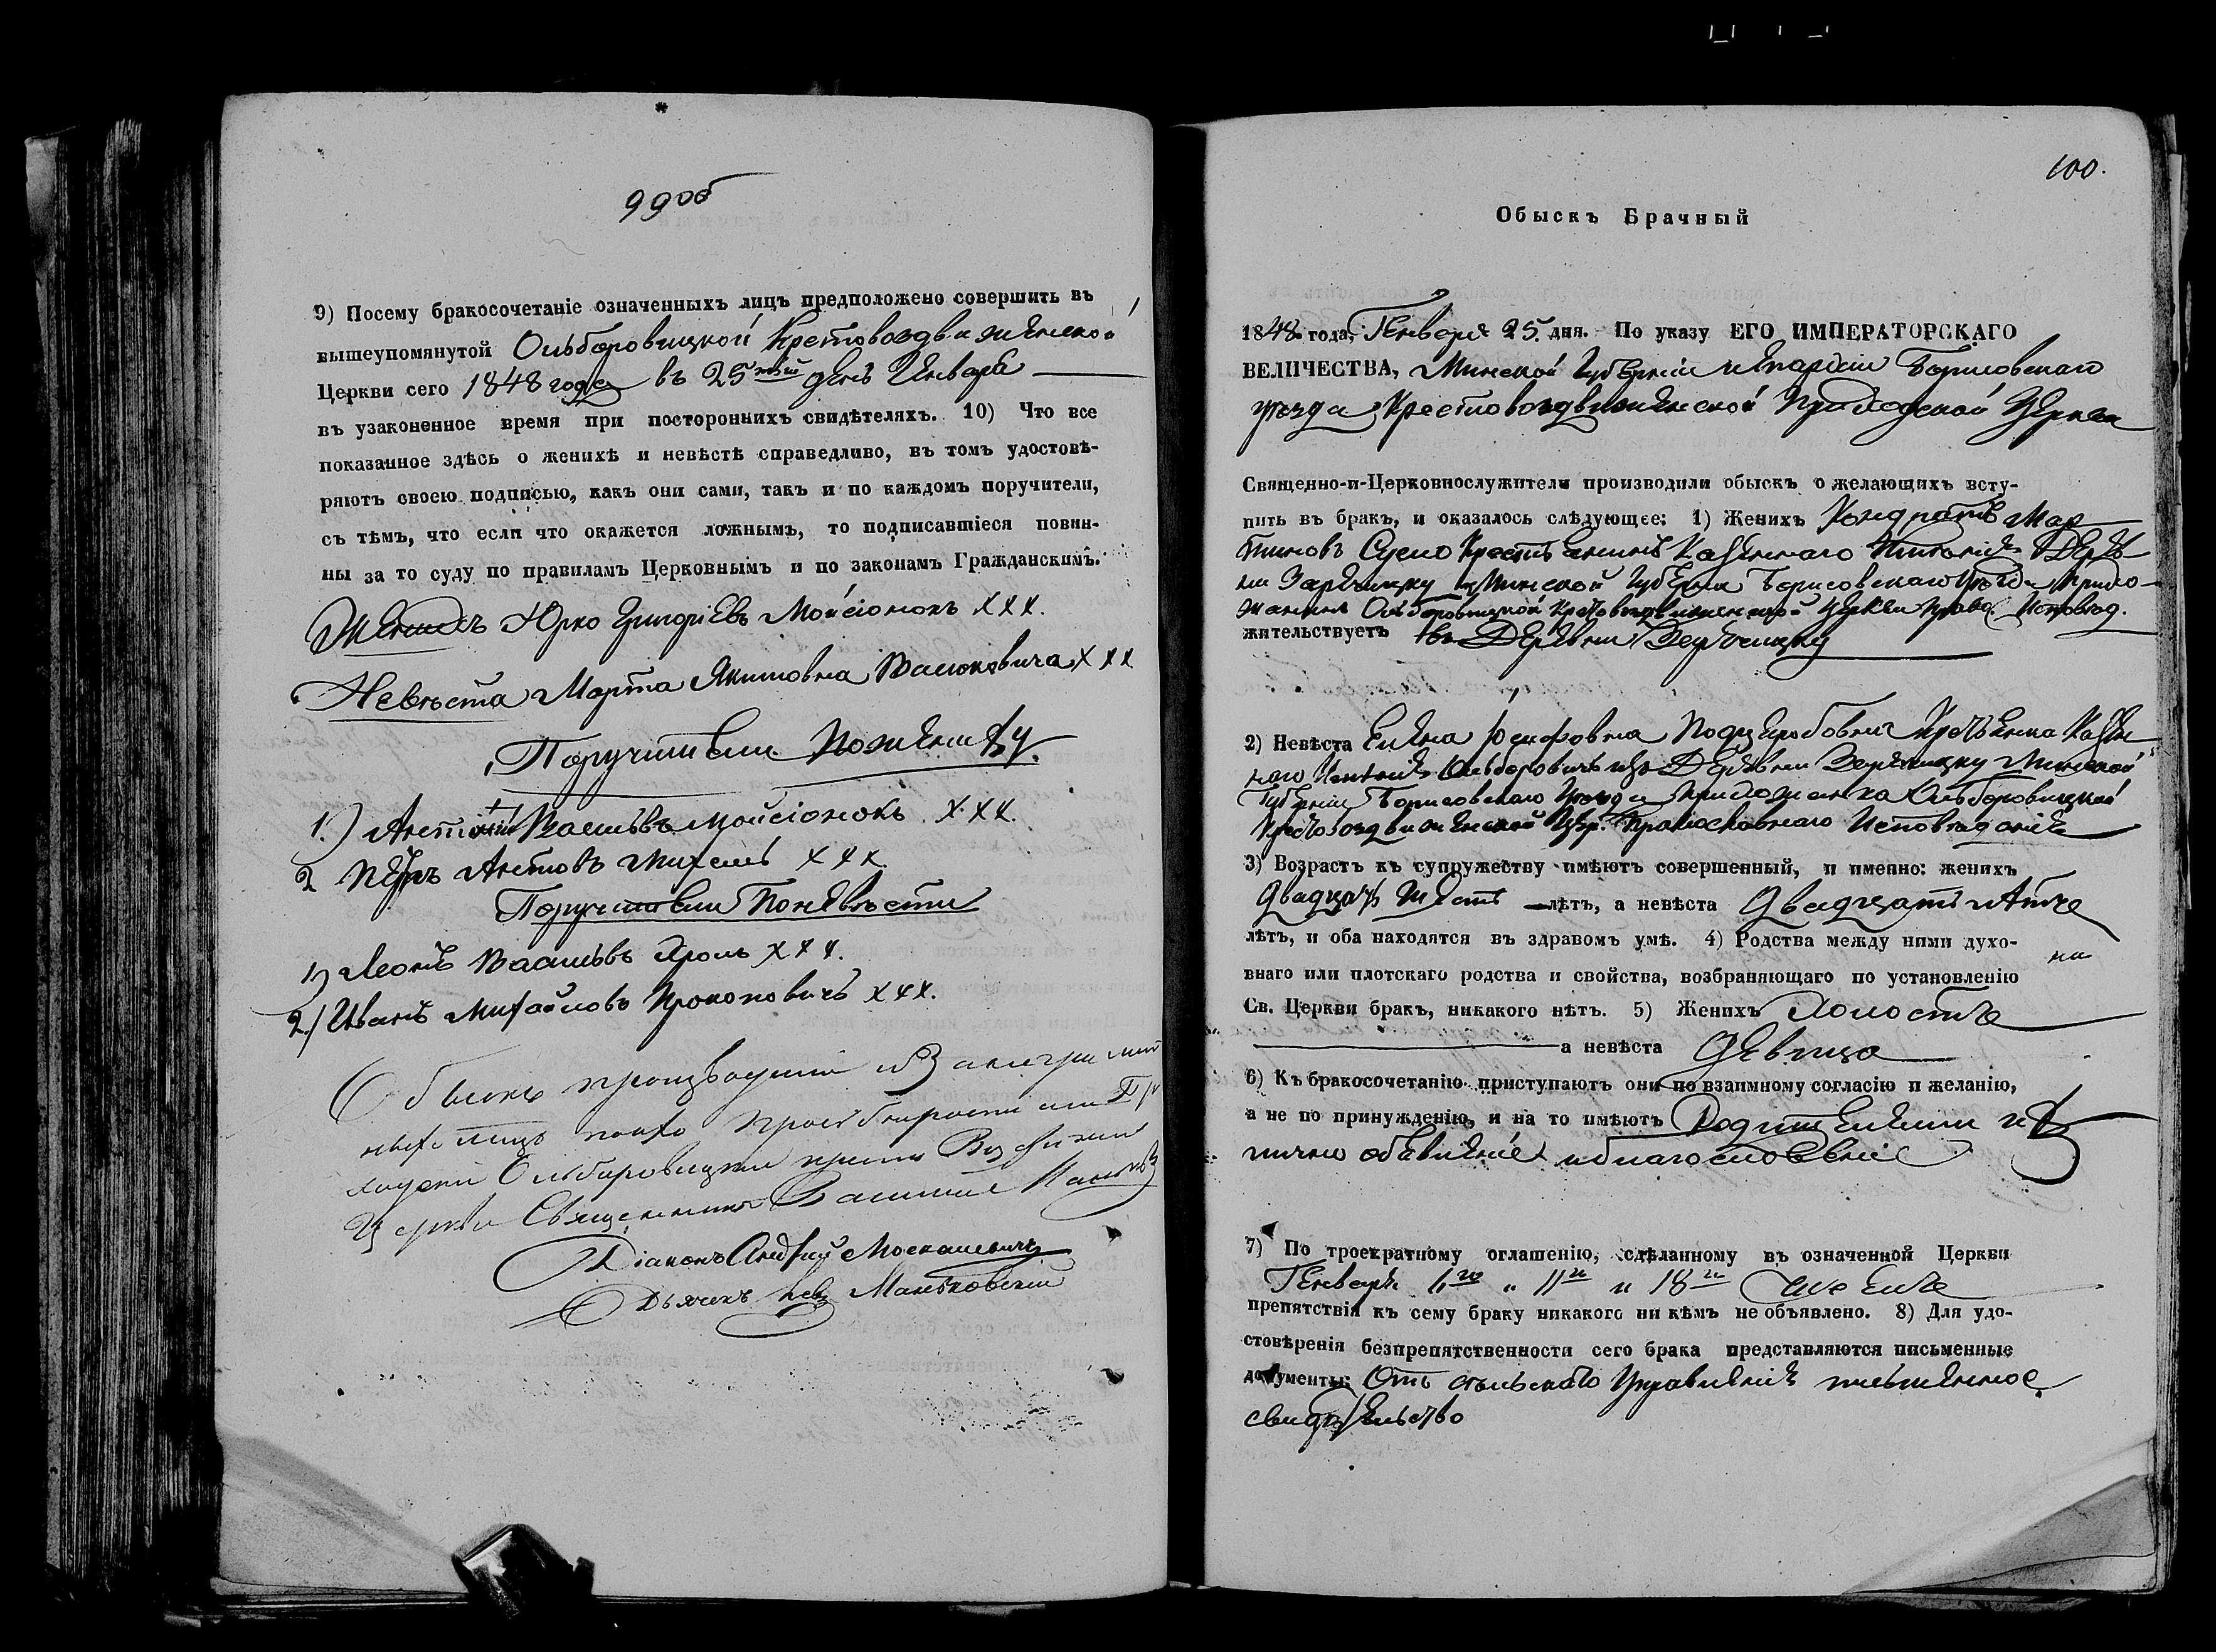 99 об
9) Посему бракосочетаніе означенныхъ лицъ предположено совершить въ
вышеупомянутой Ольборовицкой Крестовоздвиженской
Церкви сего 1848 года въ 25 тый день Января
въ узаконенное время при постороннихъ свидѣтеляхъ. 10) Что все
показанное здѣсь о женихѣ и невѣстѣ справедливо, въ томъ удостовѣ-
ряютъ своею подписью, какъ они сами, такъ и по каждомъ поручители,
съ тѣмъ, что если что окажется ложнымъ, то подписавшіеся повин-
ны за то суду по правиламъ Церковнымъ и по законамъ Гражданскимъ.
Женихъ Юрко Григоріевъ Мойсіонокъ ххх.
Невѣста Марта Якимовна Васюковича ххх
Поручители По Жениху.
1.) Антоній Васильевъ Мойсіонокъ ххх.
2 Петръ Антоновъ ххх
Поручители По Невѣсти
1) Леонъ Васильевъ Кроль ххх.
2.) Иванъ Михайловъ Прокоповичъ ххх.
Обыскъ производили
лицъ
Ольборовицкой
Церкви Священникъ Василій
Діаконъ Андрей Москалевичъ
Дьячекъ Маньковскій
100.
Обыскъ Брачный
1848 года, Генваря 25. дня. По указу ЕГО ИМПЕРАТОРСКАГО
ВЕЛИЧЕСТВА, Минской Губерніи и Епархіи Борисовскаго
уѣзда Крестовоздвиженской Приходской Церкви
Священно-и-Церковнослужители производили обыскъ о желающихъ всту-
пить въ бракъ, и оказалось слѣдующее: 1) Женихъ Кондратъ Мар
тиновъ Сушо Крестьянинъ Казеннаго Имѣнія Дерев-
ни Заречицку Минской Губерніи Борисовскаго Уѣзда Прихо-
жанинъ Ольборовицкой Крестовоздвиженской Церкви Правос. Исповѣд.
жительствуетъ въ Деревни Заречицку
2) Невѣста Елена Іосифовна Крестьянка Казен
наго Имѣнія Ольборовичъ изъ Деревни Заречицку Минской
Губерніи Борисовскаго Уѣзда прихожанка Ольборовицкой
Крестовоздвиженской Цер. Православнаго Исповѣданія
3) Возрастъ къ супружеству имѣютъ совершенный, и именно: женихъ
Двадцать Шесть лѣтъ, а невѣста Двадцать
лѣтъ, и оба находятся въ здравомъ умѣ. 4) Родства между ними духо-
ни
внаго или плотскаго родства и свойства, возбраняющаго по установленію
Св. Церкви бракъ, никакого нѣтъ. 5) Женихъ Холостъ
а невѣста Девица
6) Къ бракосочетанію приступаютъ они по взаимному согласію и желанію,
а не по принужденію, и на то имѣютъ Родителями
лично объявленіе и благословеніе
7) По троекратному оглашенію, сдѣланному въ означенной Церкви
Генваря 6 го " 11 го и 18 го
препятствія къ сему браку никакого ни кѣмъ не объявлено. 8) Для удо-
стовѣренія безпрепятственности сего брака представляются письменные
документы: Отъ сельскаго Управленія письменное
свидѣтельство